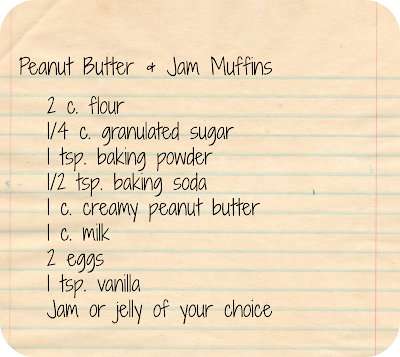 Peanut Butter & Jam Muffins
2 c. flour
1/4 c. granulated sugar
1 tsp. baking powder
1/2 tsp. baking soda
1 c. creamy peanut butter
1 c. milk
2 eggs
1 tsp. vanilla
Jam or jelly of your choice